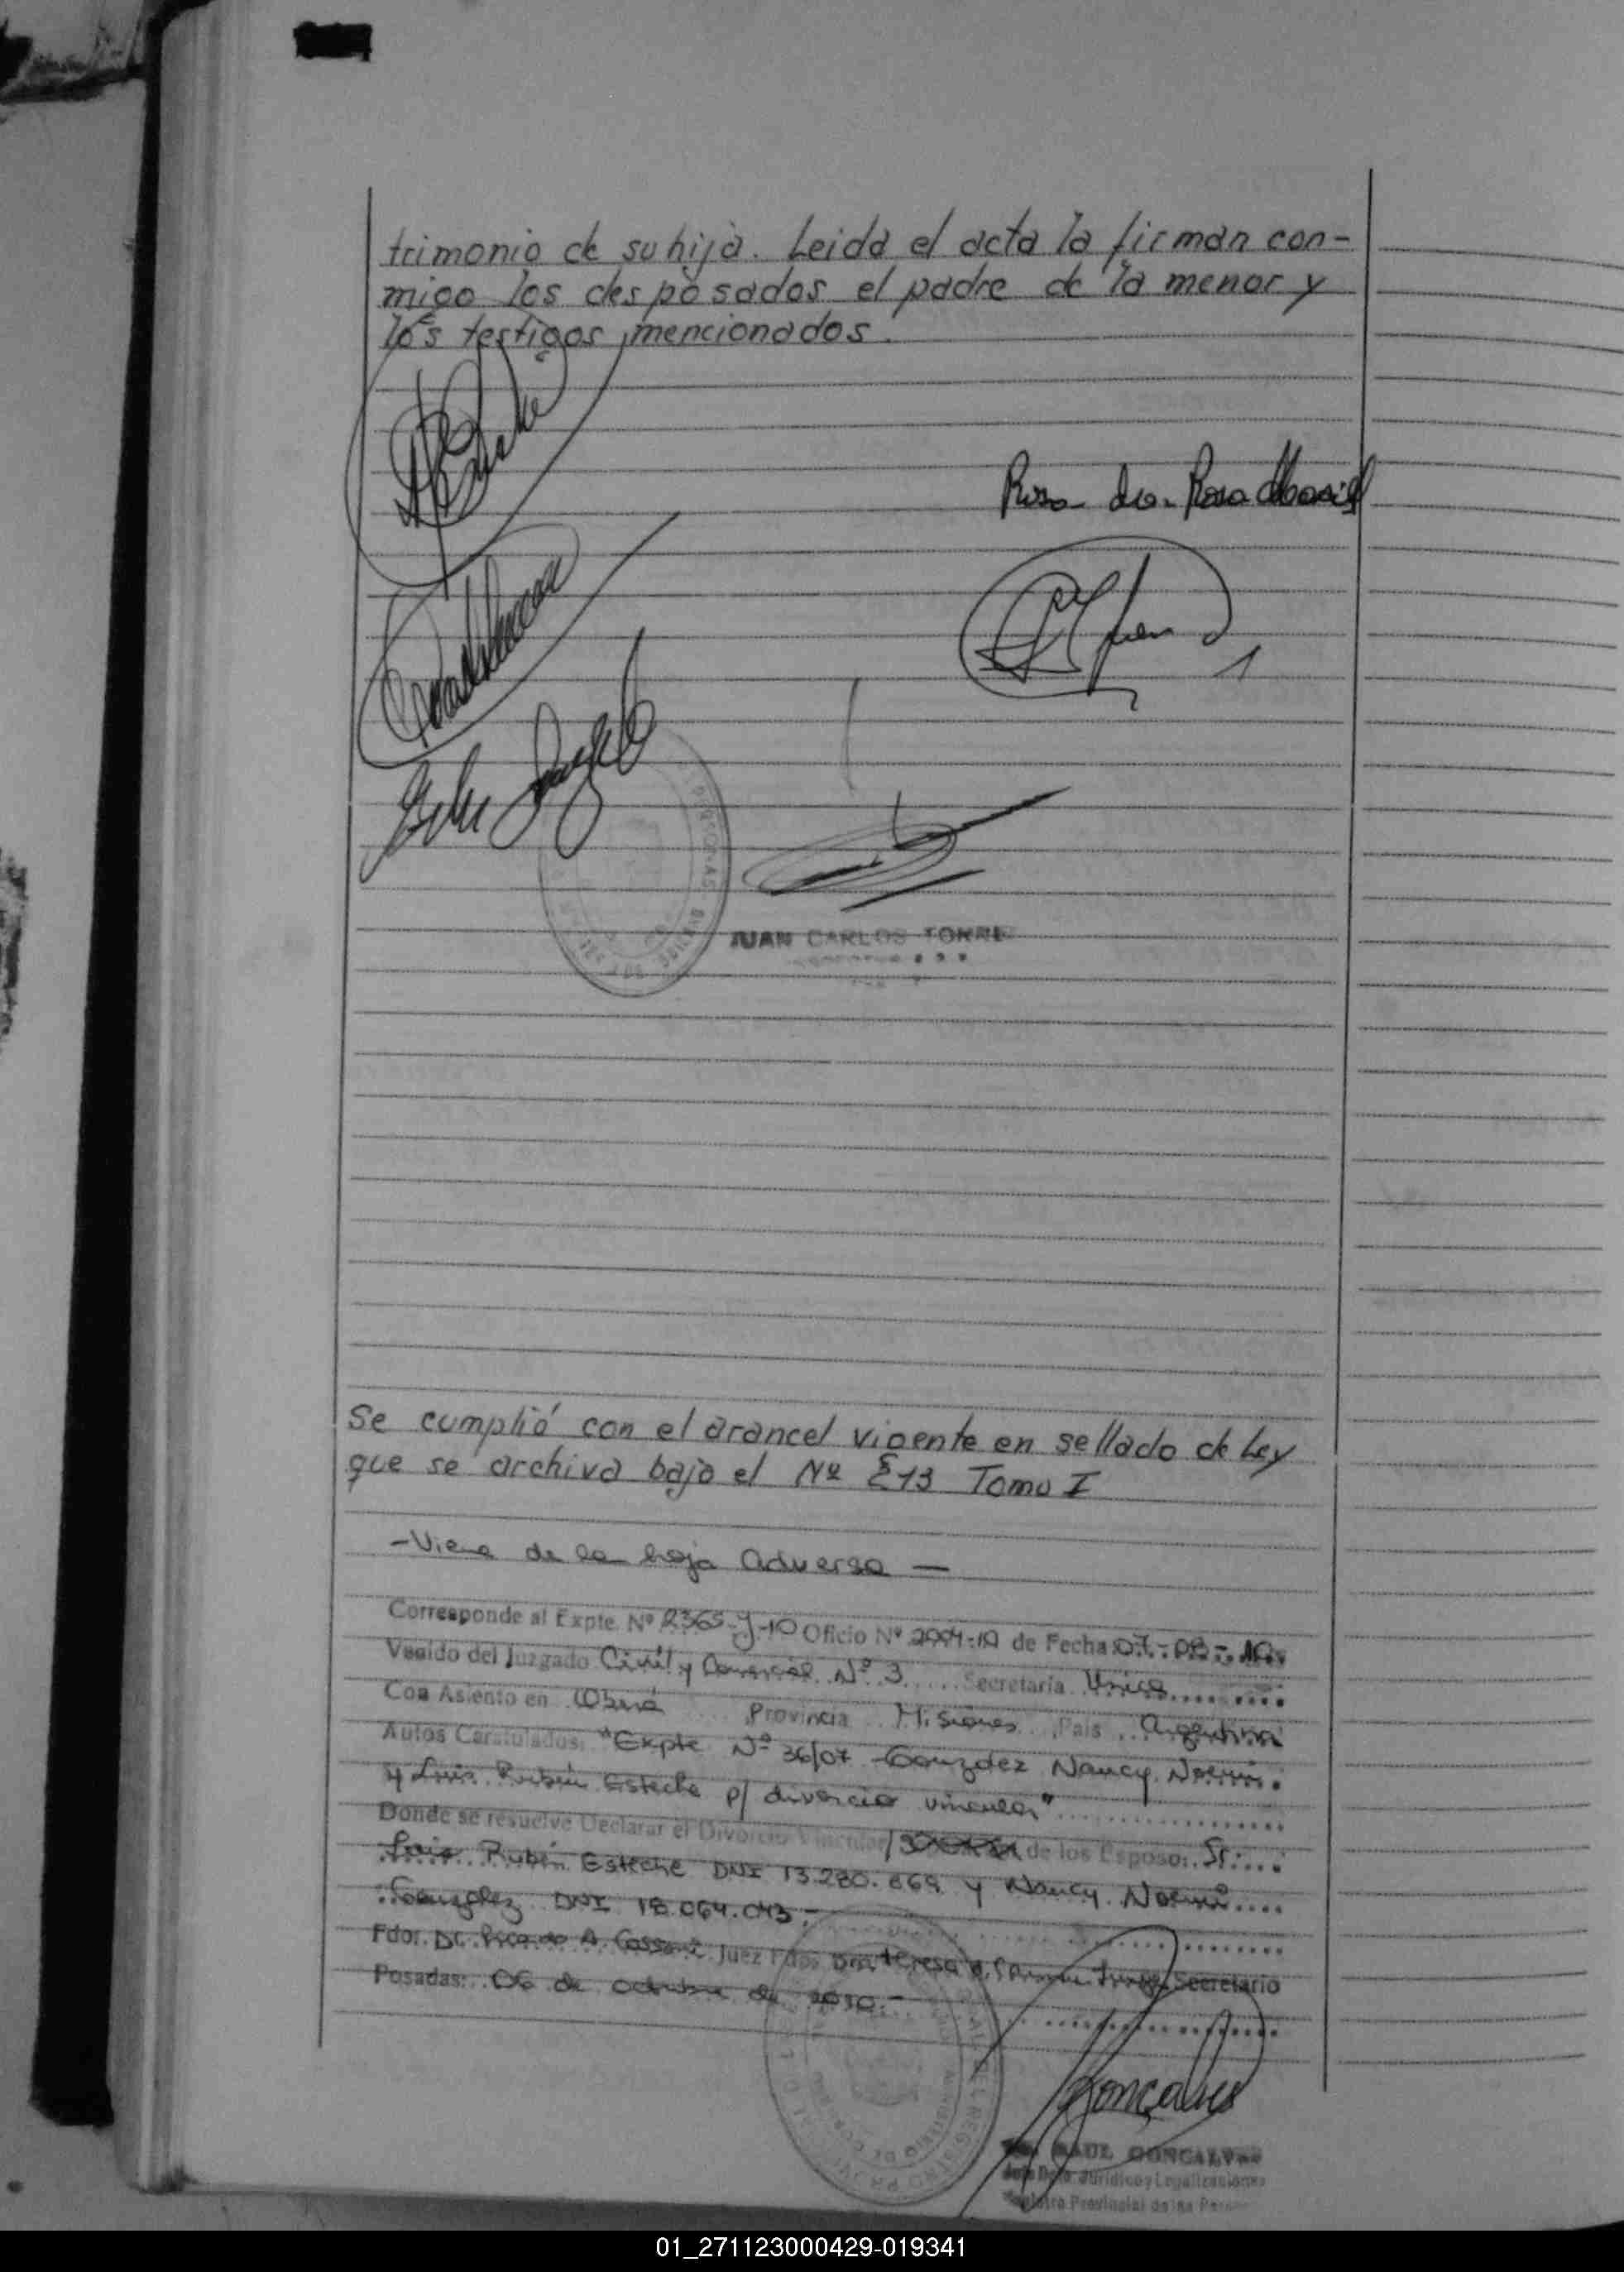 trimonio de su hija. Leida el acta la firman con-
migo los desposados el padre de la menor y
los testigos mencionados.
Rosa
JUAN CARLOS TORRE
Se cumplió con el arancel vigente en sellado de Ley
que se archiva bajo el Nº 813 Tomo I
-Viene de la hoja adversa-
Corresponde al Expte. Nº 2365-J-10 Oficio Nº de Fecha
Venido del Juzgado Civil y Comercial Nº 3 Secretaría Unica
Con Asiento en Oberá Provincia Misiones País Argentina
Autos Caratulados: "Expte Nº 36/07 Gonzalez Nancy Noemi
y Luis Rubén Esteche p/ divorcio vincular"
Donde se resuelve Declarar el Divorcio Vincular/ de los Esposo: Sr:
Luis Rubén Esteche DNI 13.280.869 y Nancy Noemi
Gonzalez DNI 18.064.043.-
Fdor. Dr. Ricardo A. Juez Fdo: Dra. Teresa Secretario
Posadas: 06 de octubre de 2010.-
Goncalves
RAUL GONCALVES
Jurídico y Legalizaciones
Registro Provincial de las
01_271123000429-019341